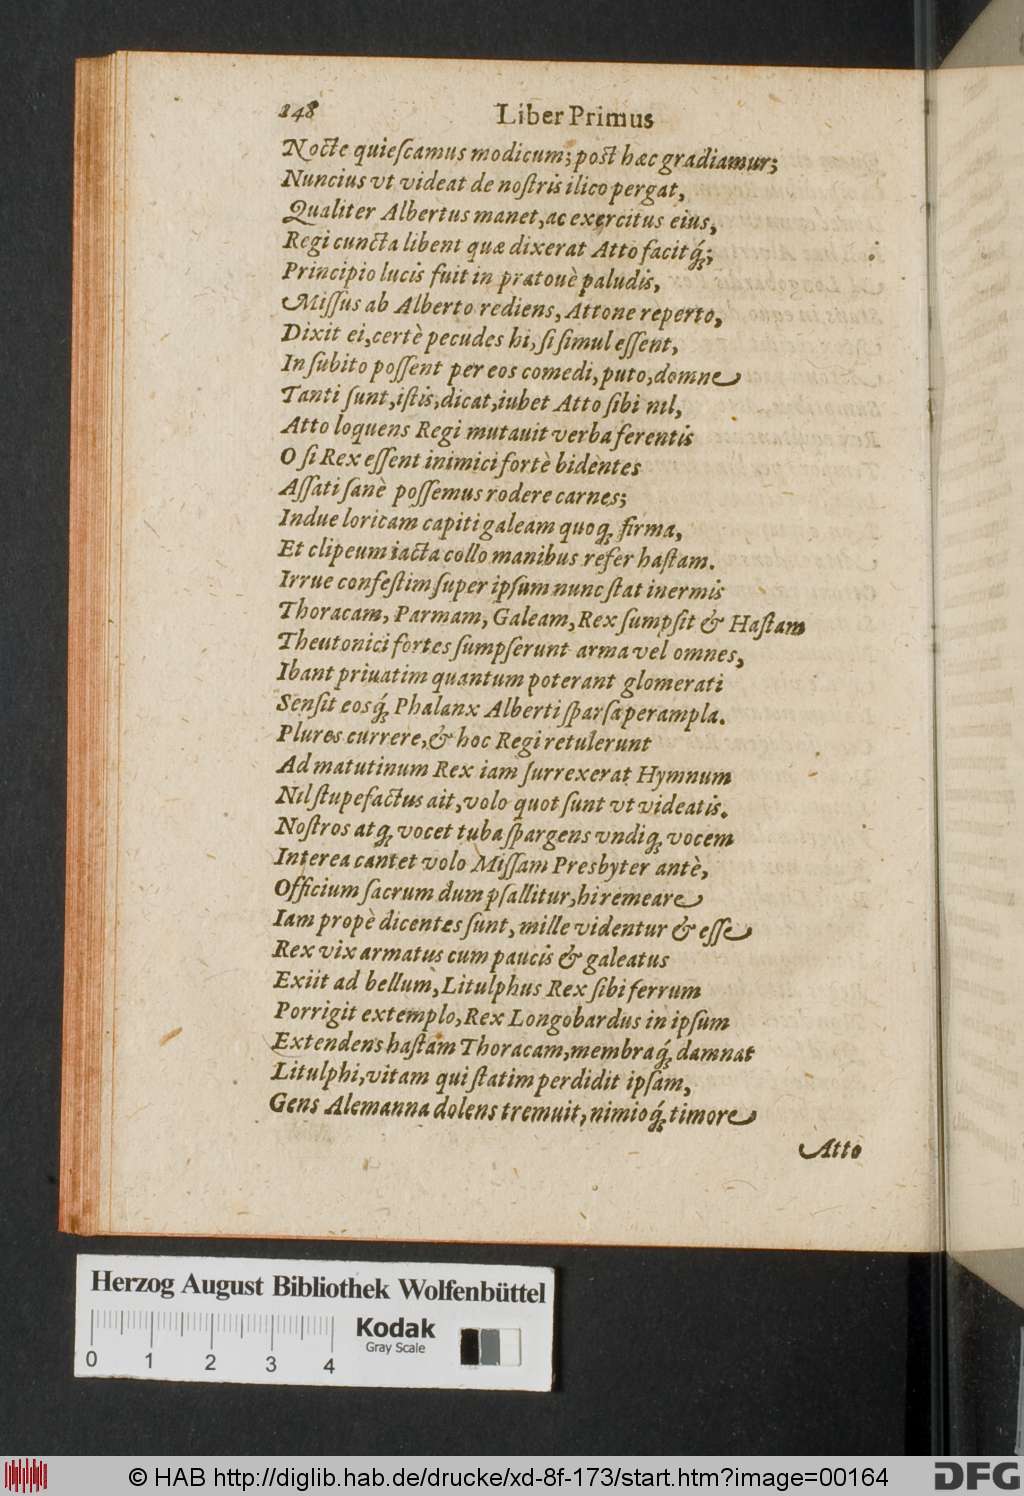 148
Liber Primus
Nocte quieſcamus modicum; poſt hæc gradiamur;
Nuncius vt videat de noſtris ilico pergat,
Qualiter Albertus manet, ac exercitus eius,
Regi cuncta libent quæ dixerat Atto facitq́;;
Principio lucis fuit in pratouè paludis,
Miſſus ab Alberto rediens, Attone reperto,
Dixit ei, certè pecudes hi, ſi ſimul eſſent,
In ſubito poſſent per eos comedi, puto, domne
Tanti ſunt, iſtis, dicat, iubet Atto ſibi nil,
Atto loquens Regi mutauit verba ferentis
O ſi Rex eſſent inimici fortè bidentes
Aſſati ſanè poſſemus rodere carnes;
Indue loricam capiti galeam quoq; firma,
Et clipeum iacta collo manibus refer haſtam.
Irrue confeſtim ſuper ipſum nunc ſtat inermis
Thoracam, Parmam, Galeam, Rex ſumpſit & Haſtam
Theutonici fortes ſumpſerunt arma vel omnes,
Ibant priuatim quantum poterant glomerati
Senſit eosq́; Phalanx Alberti ſparſa perampla.
Plures currere, & hoc Regi retulerunt
Ad matutinum Rex iam ſurrexerat Hymnum
Nil ſtupefactus ait, volo quot ſunt vt videatis.
Noſtros atq; vocet tuba ſpargens vndiq; vocem
Interea cantet volo Miſſam Presbyter antè,
Officium ſacrum dum pſallitur, hi remeare
Iam propè dicentes ſunt, mille videntur & eſſe
Rex vix armatus cum paucis & galeatus
Exiit ad bellum, Litulphus Rex ſibi ferrum
Porrigit extemplo, Rex Longobardus in ipſum
Extendens haſtam Thoracam, membraq́; damnat
Litulphi, vitam qui ſtatim perdidit ipſam,
Gens Alemanna dolens tremuit, nimioq́; timore
Atto
Herzog August Bibliothek Wolfenbüttel
0 1 2 3 4
Kodak
Gray Scale
© HAB http://diglib.hab.de/drucke/xd-8f-173/start.htm?image=00164
DFG